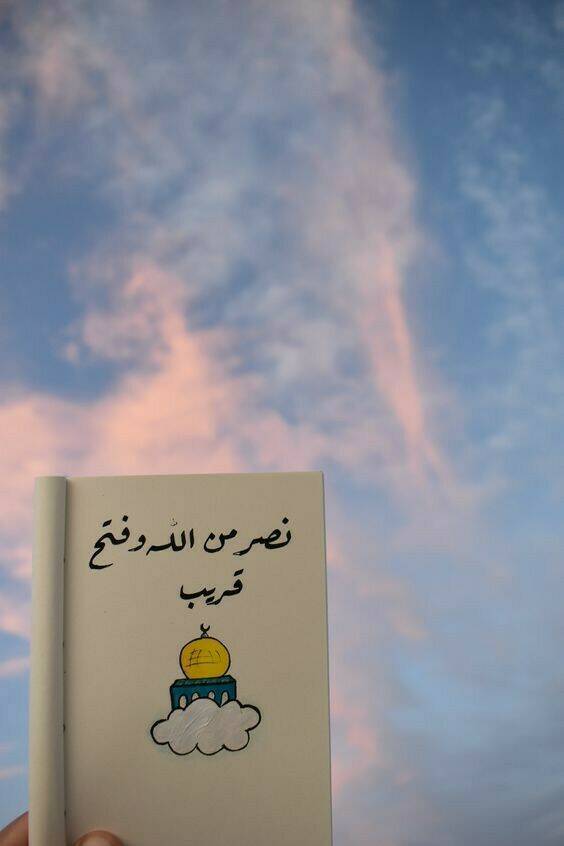 نصر من الله وفتح
قريب